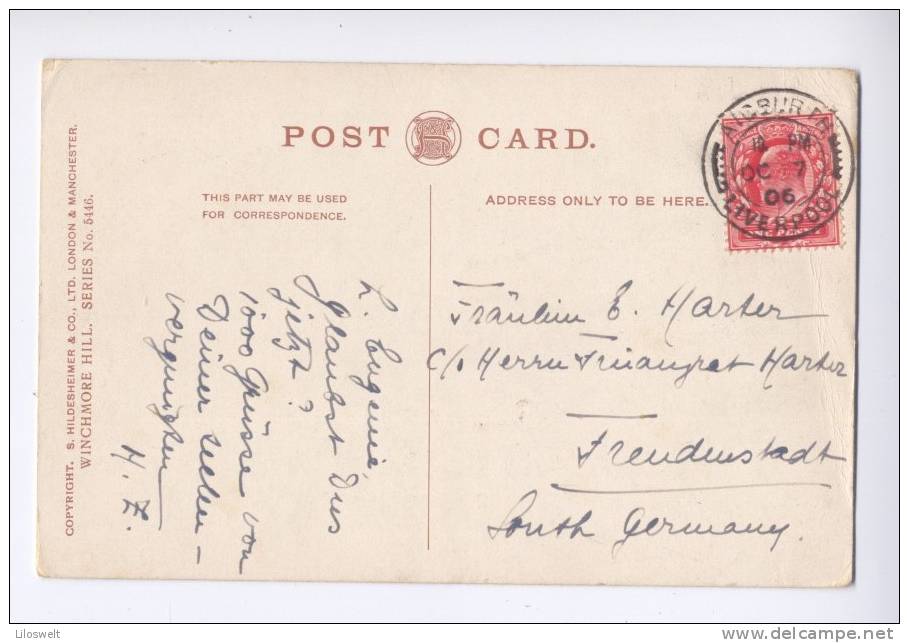 POST CARD.
THIS PART MAY BE USED
FOR CORRESPONDENCE.
ADDRESS ONLY TO BE HERE.
LIVERPOOL
PM
OC 7
06
COPYRIGHT. S. HILDESHEIMER & CO., LTD. LONDON & MANCHESTER.
WINCHMORE HILL. SERIES No. 5446.
L. Eugenie,
Glaubst Dus
jetzt?
1000 Grüsse von
Deiner seelen-
vergnügten
H. Z.
Fräulein E. Harter
c/o Herrn Harter
Freudenstadt
South Germany.
Liloswelt
delcampe.net